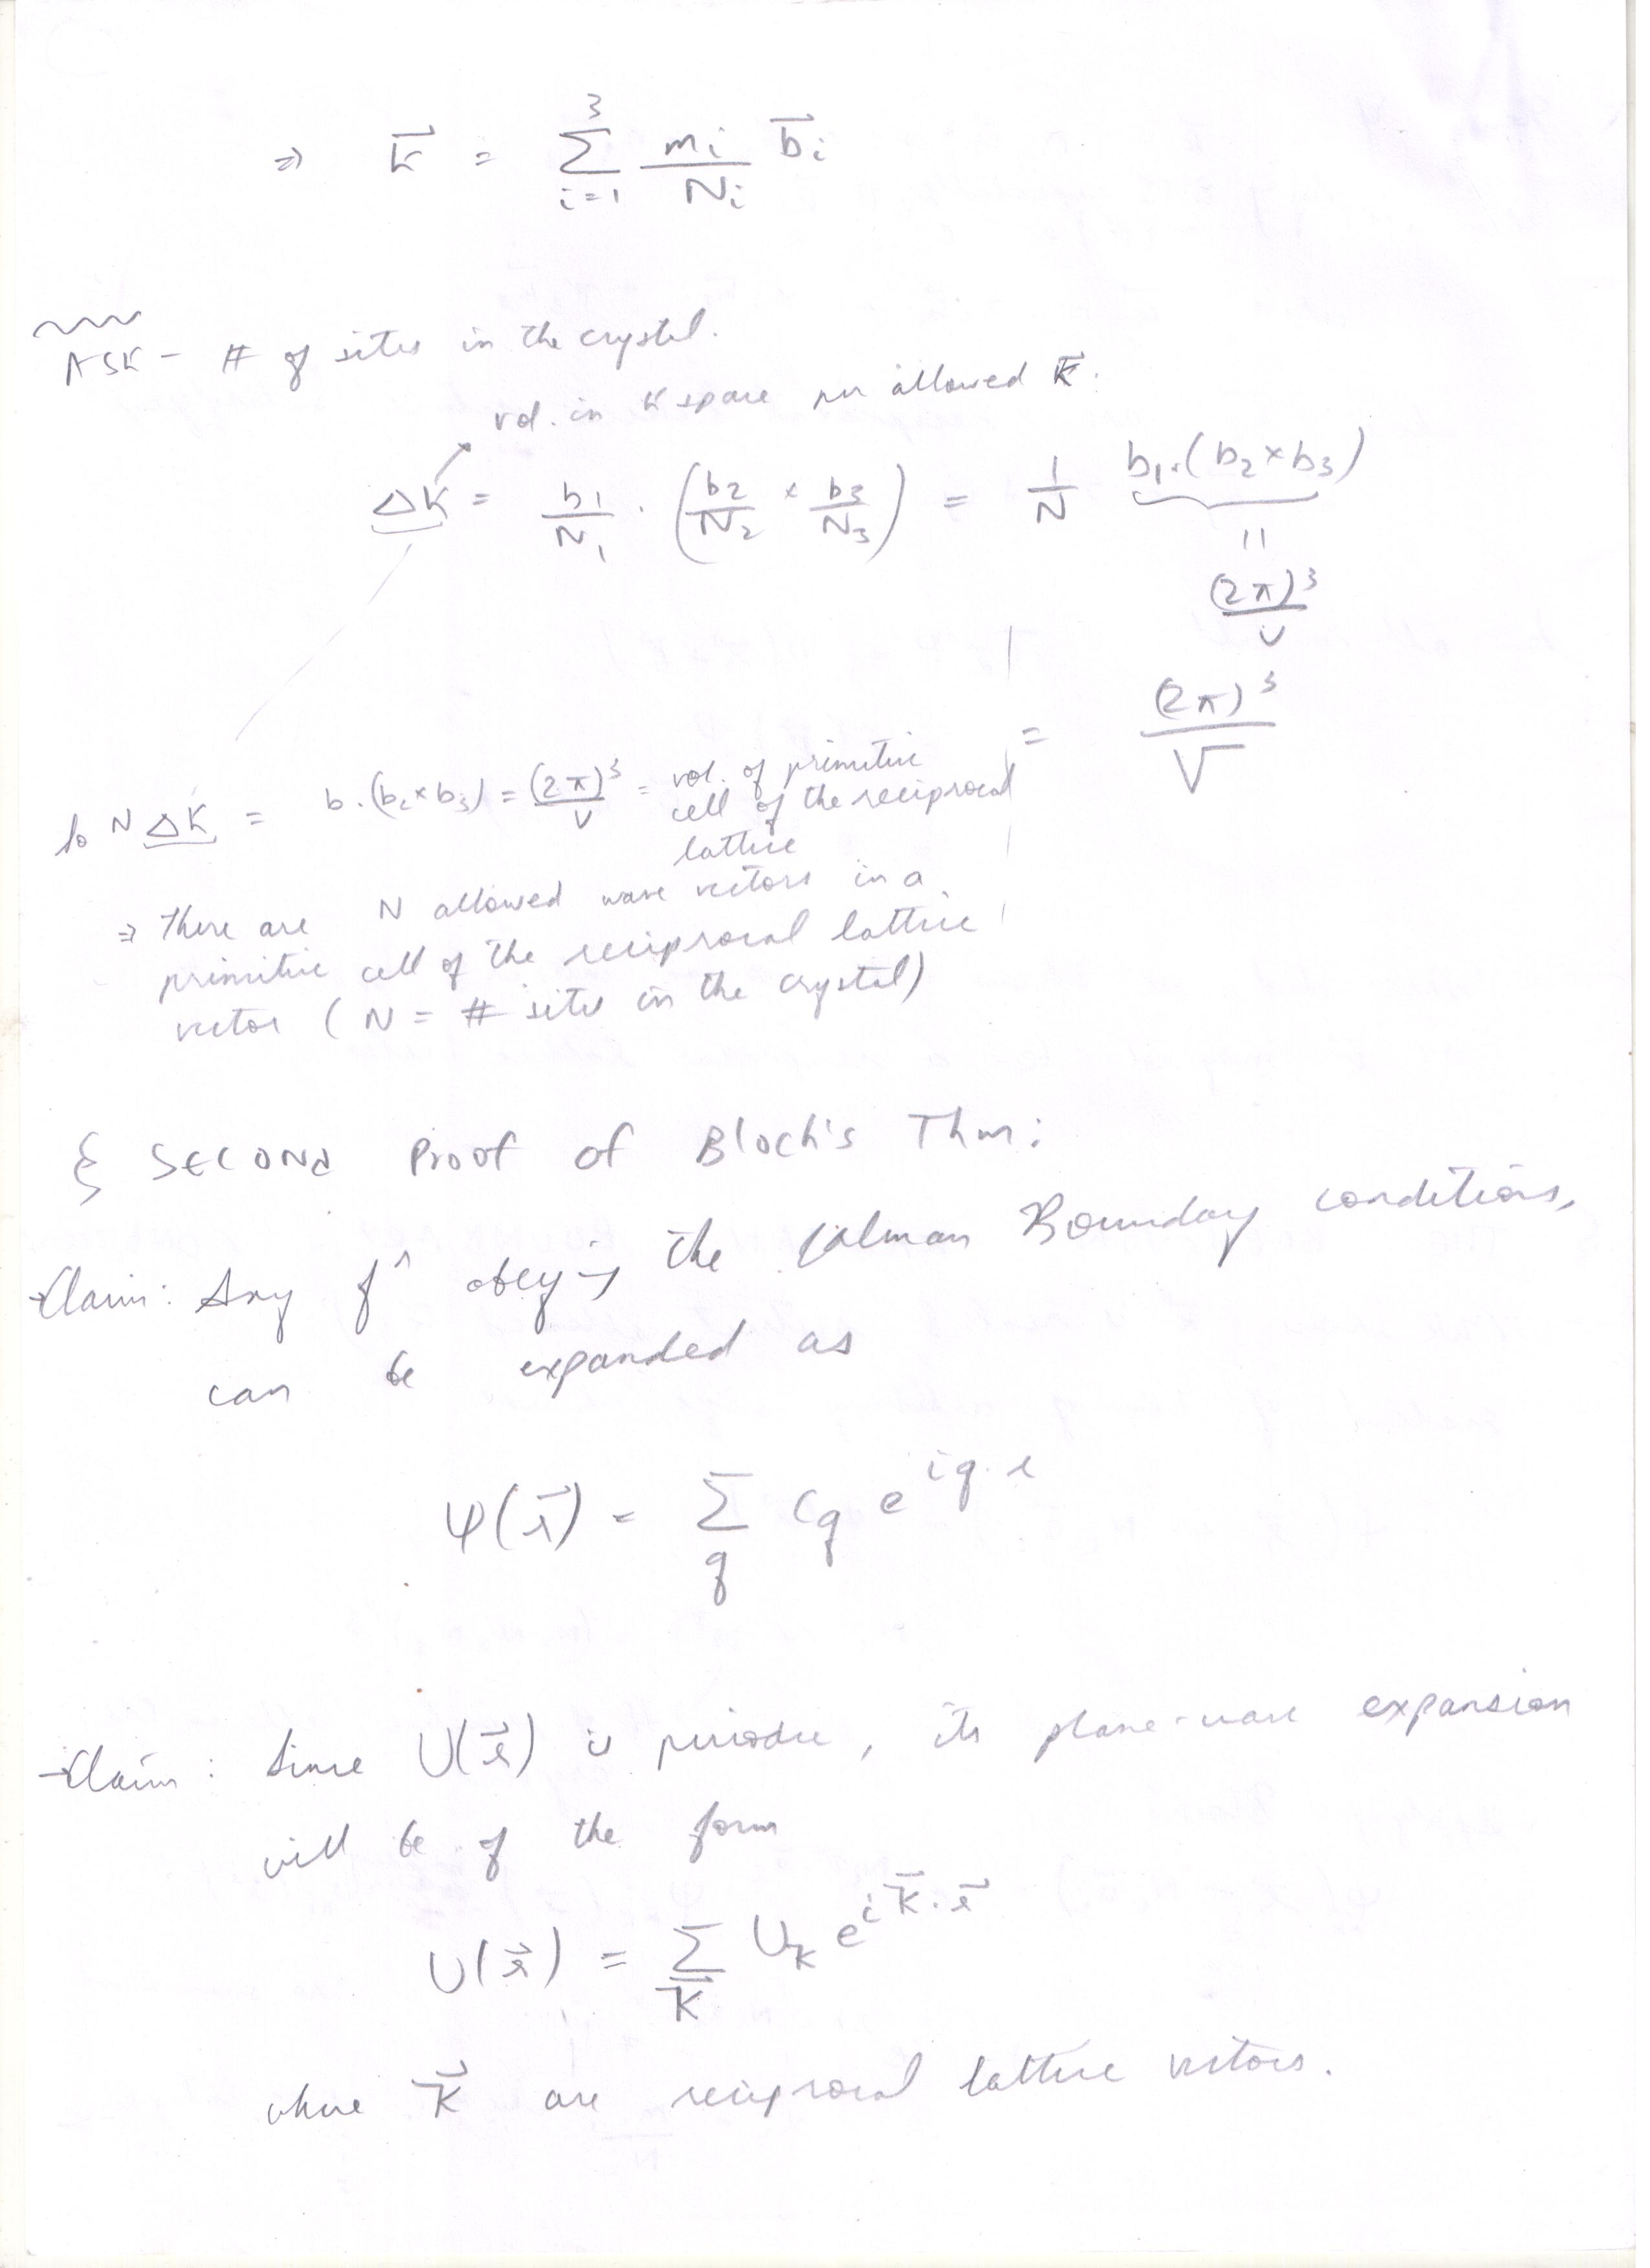 ⇒ k⃗ = Σ_{i=1}^{3} m_i/N_i b⃗_i
ASK – # of sites in the crystal.
vol. in k space per allowed k⃗.
Δk = b1/N1 · (b2/N2 × b3/N3) = 1/N b1.(b2×b3)
||
(2π)^3/v
= (2π)^3/V
So N Δk = b.(b2×b3) = (2π)^3/v = vol. of primitive
cell of the reciprocal
lattice
⇒ There are N allowed wave vectors in a
primitive cell of the reciprocal lattice
vector (N = # sites in the crystal)
§ SECOND Proof of Bloch's Thm:
→Claim: Any f^n obeying the Boundary conditions,
can be expanded as
ψ(r⃗) = Σ_q c_q e^{iq.r}
→Claim: Since U(r⃗) is periodic, its plane-wave expansion
will be of the form
U(r⃗) = Σ_K⃗ U_K e^{iK⃗.r⃗}
where K⃗ are reciprocal lattice vectors.